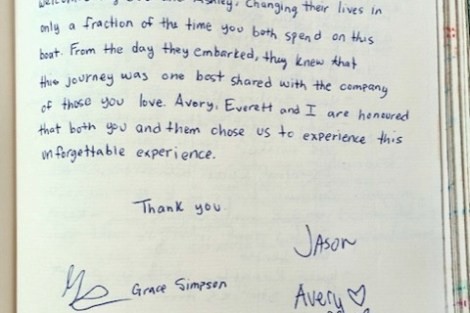 Ashley, Changing their lives in
only a fraction of the time you both spend on this
boat. From the day they embarked, they knew that
this journey was one best shared with the company
of those you love. Avery, Everett and I are honoured
that both you and them chose us to experience this
unforgettable experience.
Thank you
JASON
Grace Simpson
Avery ♡